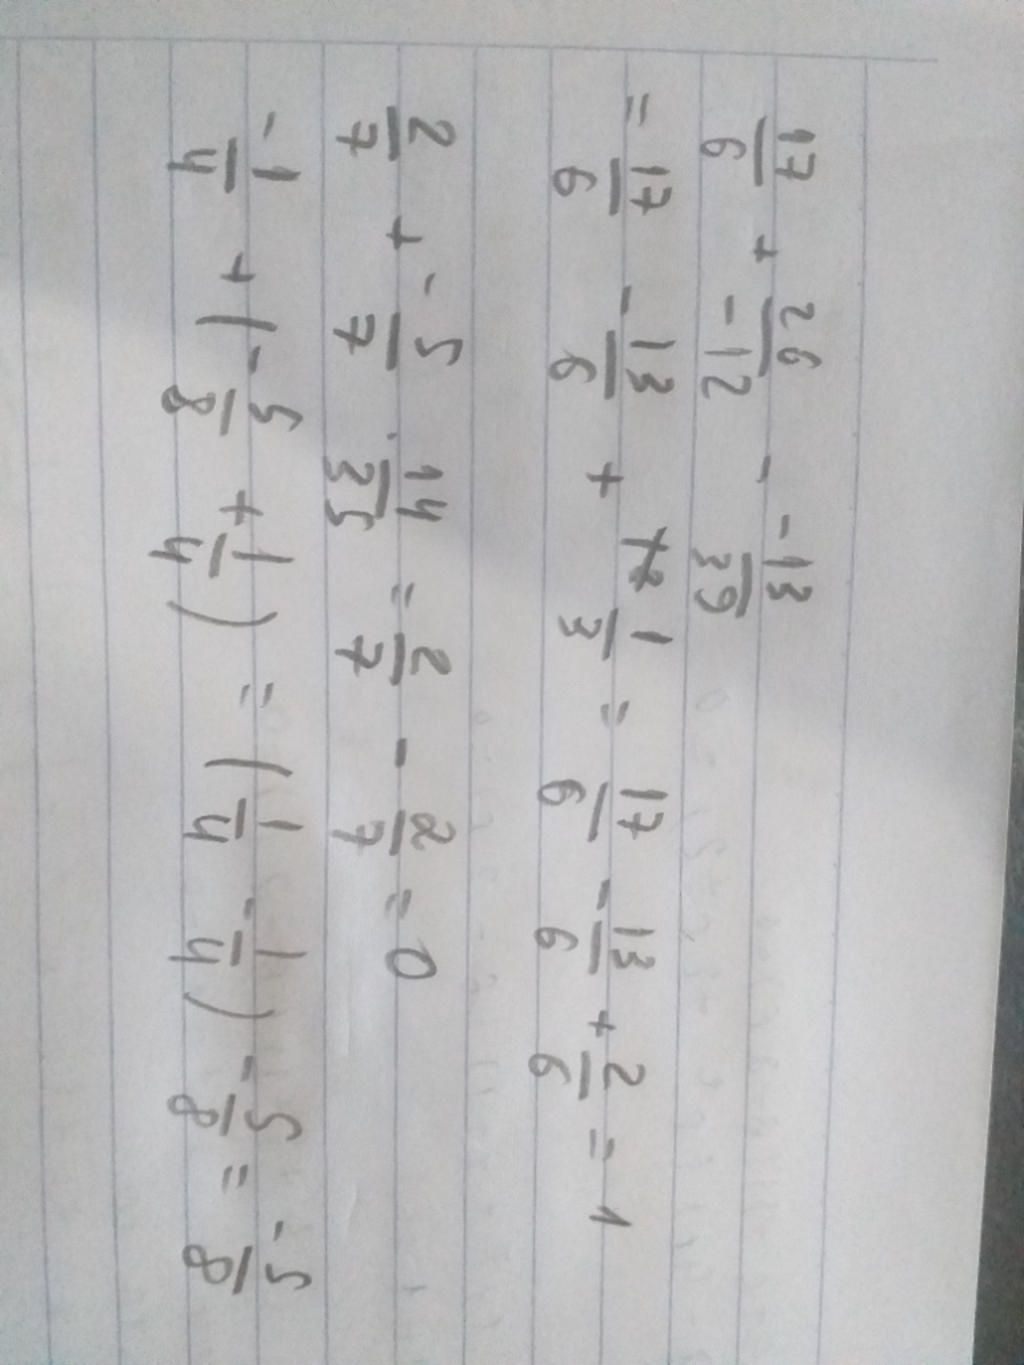 17/6 + 26/-12 - -13/39
= 17/6 - 13/6 + 1/3 = 17/6 - 13/6 + 2/6 = 1
2/7 + -5/7 · 14/35 = 2/7 - 2/7 = 0
-1/4 + (-5/8 + 1/4) = (1/4 - 1/4) - 5/8 = -5/8